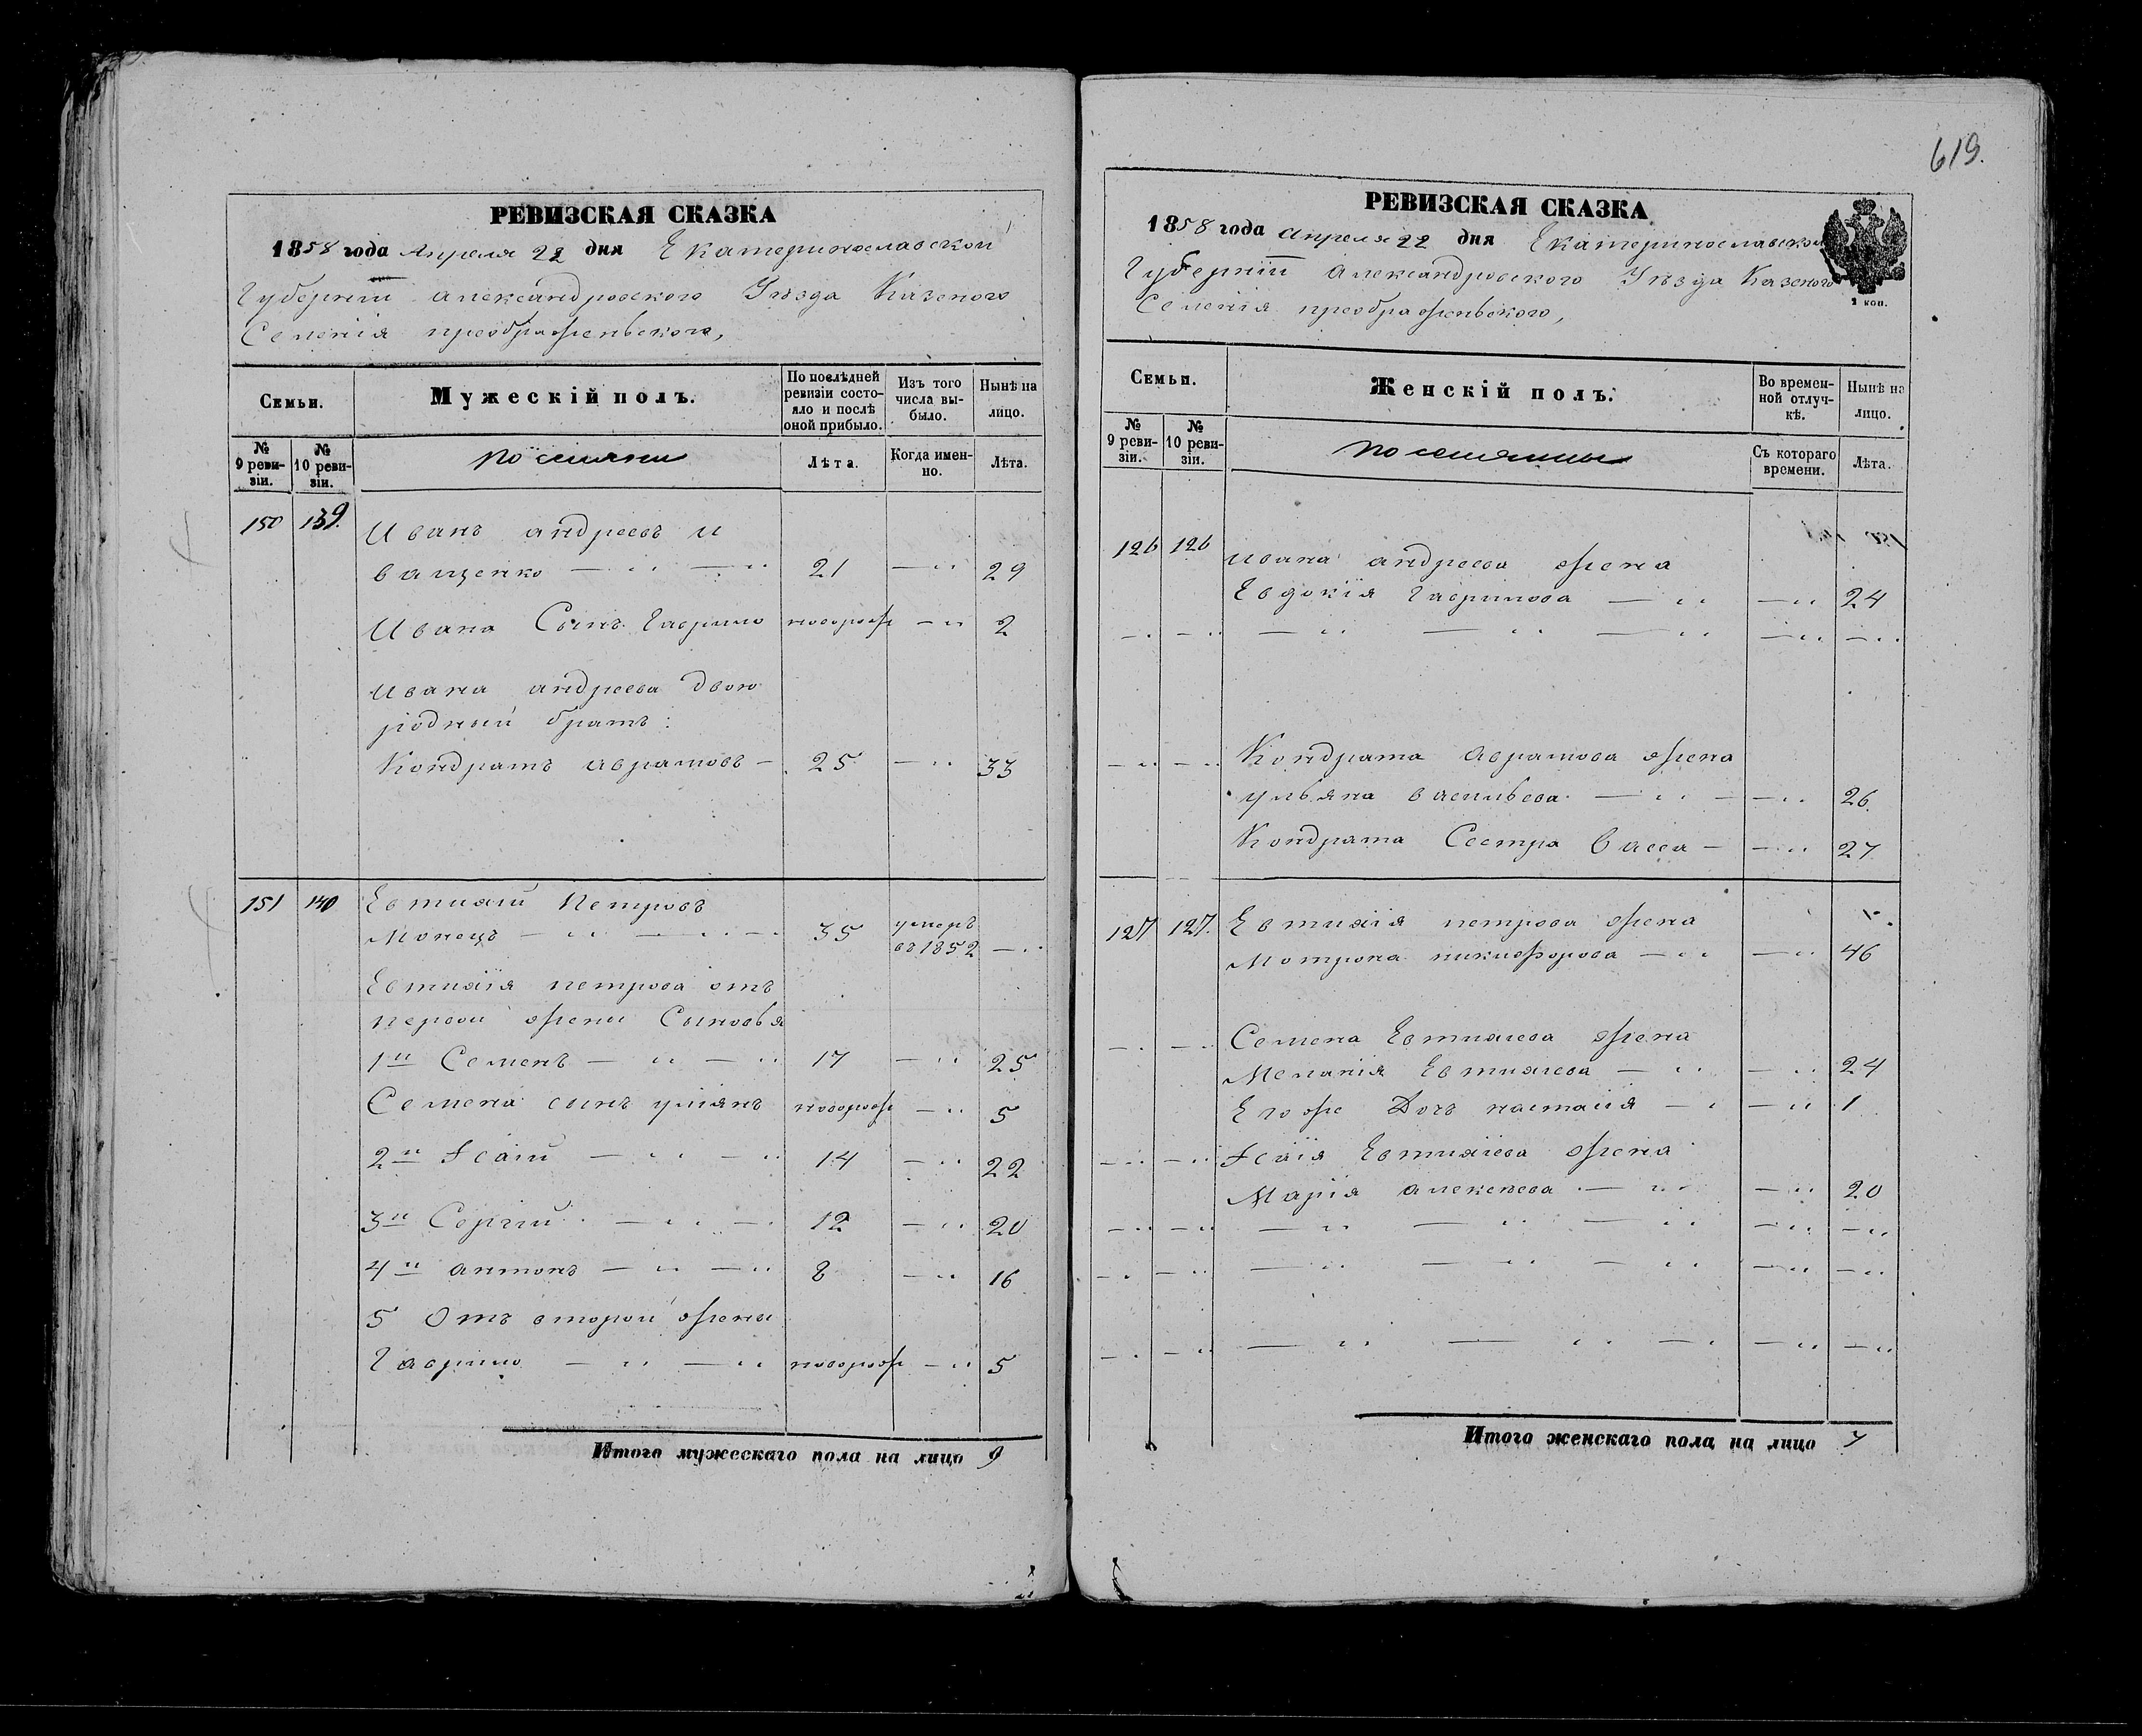 619.
РЕВИЗСКАЯ СКАЗКА
1858 года Апреля 22 дня Екатеринославской
Губерніи Александровского Уезда Казеного
Селенія преображеньского,
Семьи.
Мужескій полъ.
По послѣдней ревизіи состояло и послѣ оной прибыло.
Изъ того числа выбыло.
Нынѣ на лицо.
№ 9 ревизіи.
№ 10 ревизіи.
поселяни
Лѣта.
Когда именно.
Лѣта.
150 139. Иванъ андреевъ и
ващенко — ,, — ,, 21 — ,, 29
Ивана Сынъ Гаврило новорож — ,, 2
Ивана андреева двою
родный братъ:
Кондратъ аврамовъ — 25 — ,, 33
151 140 Евтихій Петровъ
Монецъ — ,, — ,, — 35 умеръ въ 1852 — ,,
Евтихія петрова отъ
первои жени Сыновья
1й Семенъ — ,, — ,, 17 — ,, 25
Семена сынъ улиянъ новорож — ,, 5
2й Ісаій — ,, — ,, 14 — ,, 22
3й Сергій — ,, — 12 — ,, 20
4й антонъ — ,, — ,, 8 — ,, 16
5 Отъ второй жены
Гаврило — ,, — ,, новорож — ,, 5
Итого мужескаго пола на лицо 9
РЕВИЗСКАЯ СКАЗКА
1858 года апреля 22 дня Екатеринославской
Губерніи Александровского Уѣзда Казеного
Селенія преображеньского,
2 коп.
Семьи.
Женскій полъ.
Во временной отлучкѣ.
Нынѣ на лицо.
№ 9 ревизіи.
№ 10 ревизіи.
поселянки
Съ котораго времени.
Лѣта.
126 126 Ивана андреева жена
Евдокія Гаврилова — ,, — ,, 24
— ,, — ,, — ,, — ,, — ,, — ,, — ,,
— ,, — ,, Кондрата Аврамова жена
ульяна васильева — ,, — — ,, 26.
Кондрата Сестра Васса — — ,, 27
127 127. Евтихія петрова жена
Мотрона никифорова — ,, — ,, 46
— ,, — ,, Семена Евтихиева жена
Меланія Евтихиева — ,, — ,, 24
Егоже Дочь настасія — ,, — ,, 1
— ,, — ,, Ісаія Евтихіева жена
Марія алексѣева — ,, — ,, 20
— ,, — ,, — ,, — ,, — ,, — ,, — ,,
— ,, — ,, — ,, — ,, — ,, — ,, — ,,
— ,, — ,, — ,, — ,, — ,, — ,, — ,,
Итого женскаго пола на лицо 7